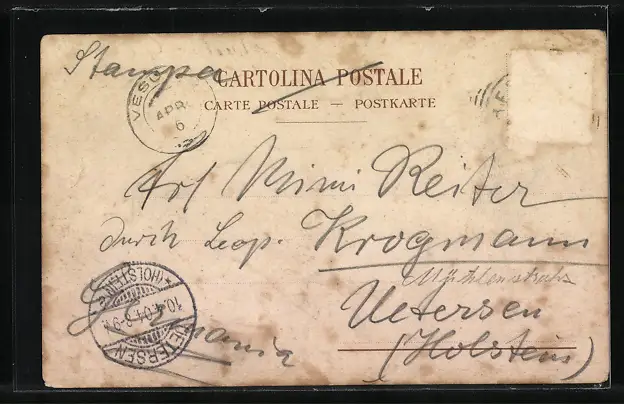 Stampa
CARTOLINA POSTALE
CARTE POSTALE — POSTKARTE
VES
APR
6
Frl Mimi Reiter
durch Leop. Krogmann
Mühlenstraße
Uetersen
(Holstein)
Germania
UETERSEN
10.4.04.8-9
*(HOLSTEIN)